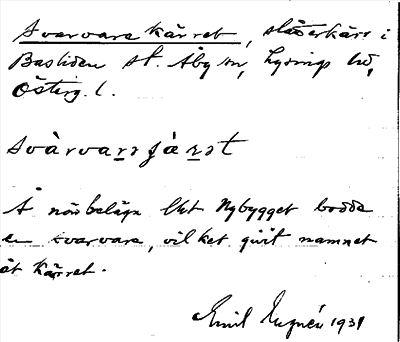 Svarvarekärret, slåtterkärr i
Basliden st. Åby sn, Lysings hd,
Österg. l.
svàrvarsjàrst
Å närbelägna lht Nybygget bodde
en svarvare, vilket givit namnet
åt kärret.
Emil 1931